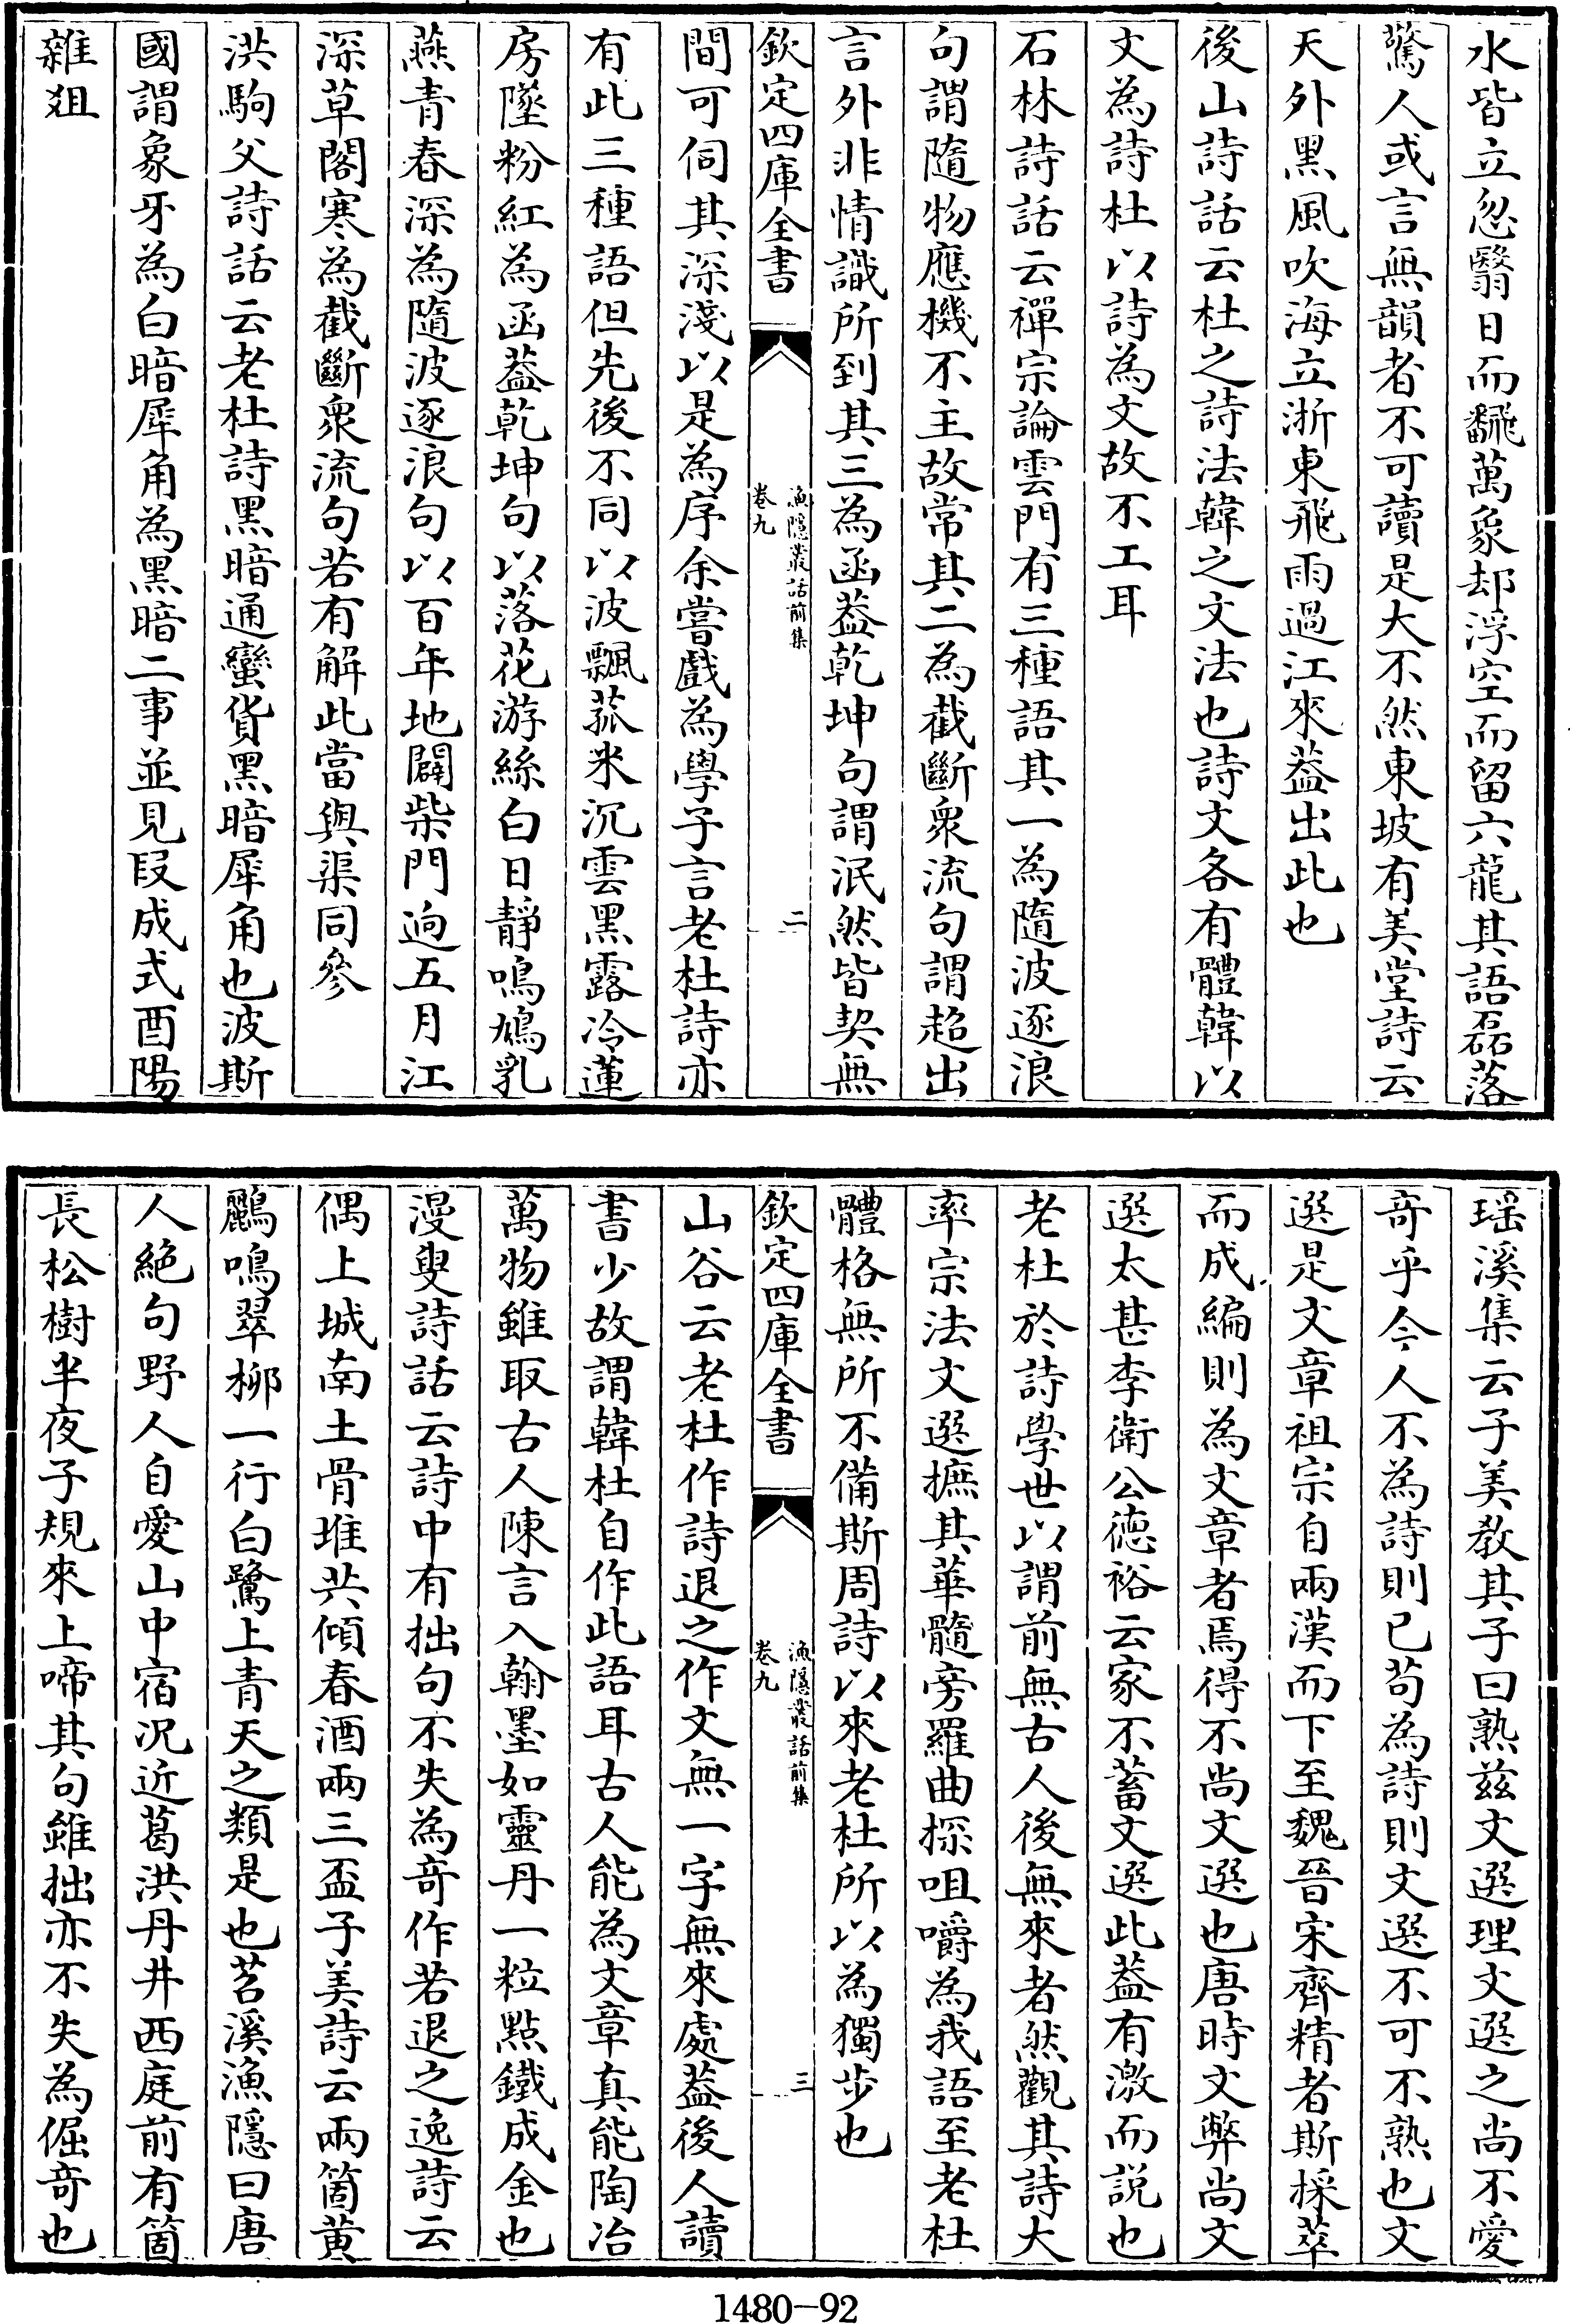 水皆立忽翳日而飜萬象却浮空而留六龍其語磊落
驚人或言無韻者不可讀是大不然東坡有美堂詩云
天外黑風吹海立浙東飛雨過江來葢出此也
後山詩話云杜之詩法韓之文法也詩文各有體韓以
文為詩杜以詩為文故不工耳
石林詩話云禪宗論雲門有三種語其一為隨波逐浪
句謂隨物應機不主故常其二為截斷衆流句謂超出
言外非情識所到其三為函葢乾坤句謂泯然皆契無
欽定四庫全書
漁隱叢話前集
卷九
二
間可伺其深淺以是為序余嘗戲為學子言老杜詩亦
有此三種語但先後不同以波飄菰米沉雲黑露冷蓮
房墜粉紅為函葢乾坤句以落花游絲白日靜鳴鳩乳
燕青春深為隨波逐浪句以百年地闢柴門逈五月江
深草閣寒為截斷衆流句若有解此當與渠同參
洪駒父詩話云老杜詩黑暗通蠻貨黑暗犀角也波斯
國謂象牙為白暗犀角為黑暗二事並見段成式酉陽
雜爼
瑶溪集云子美教其子曰熟兹文選理文選之尚不愛
奇乎今人不為詩則已苟為詩則文選不可不熟也文
選是文章祖宗自兩漢而下至魏晉宋齊精者斯採萃
而成編則為文章者焉得不尚文選也唐時文弊尚文
選太甚李衛公徳裕云家不蓄文選此葢有激而説也
老杜於詩學世以謂前無古人後無來者然觀其詩大
率宗法文選摭其華髓旁羅曲探咀嚼為我語至老杜
體格無所不備斯周詩以來老杜所以為獨步也
欽定四庫全書
漁隱叢話前集
卷九
三
山谷云老杜作詩退之作文無一字無來處葢後人讀
書少故謂韓杜自作此語耳古人能為文章真能陶冶
萬物雖取古人陳言入翰墨如靈丹一粒點鐵成金也
漫叟詩話云詩中有拙句不失為奇作若退之逸詩云
偶上城南土骨堆共傾春酒兩三盃子美詩云兩箇黄
鸝鳴翠柳一行白鷺上青天之類是也苕溪漁隱曰唐
人絶句野人自愛山中宿况近葛洪丹井西庭前有箇
長松樹半夜子規來上啼其句雖拙亦不失為倔奇也
1480-92